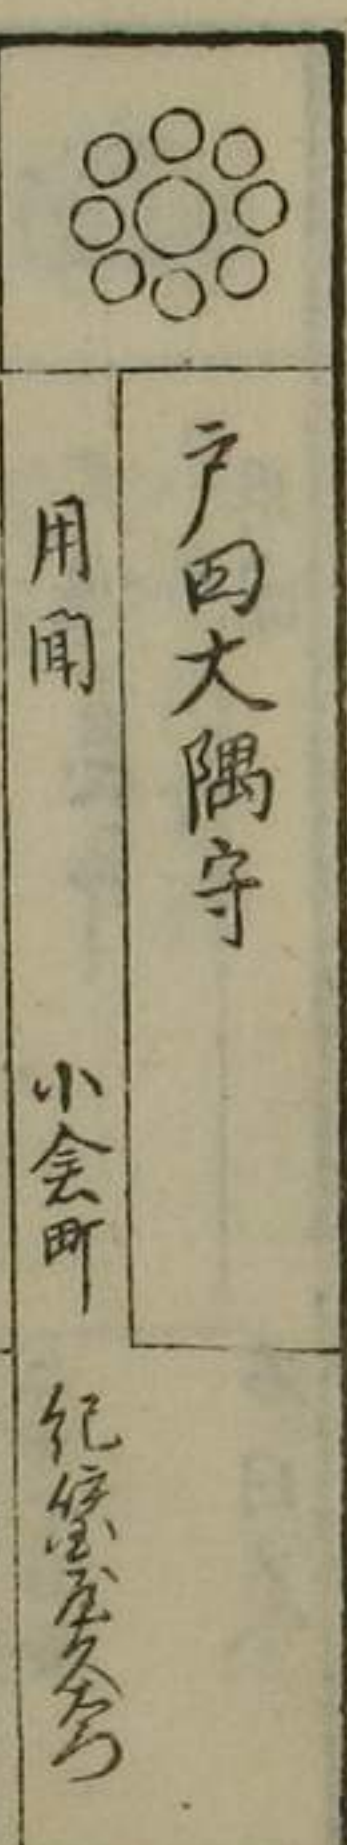 戸田大隅守
用聞　小倉町　紀伊国屋久